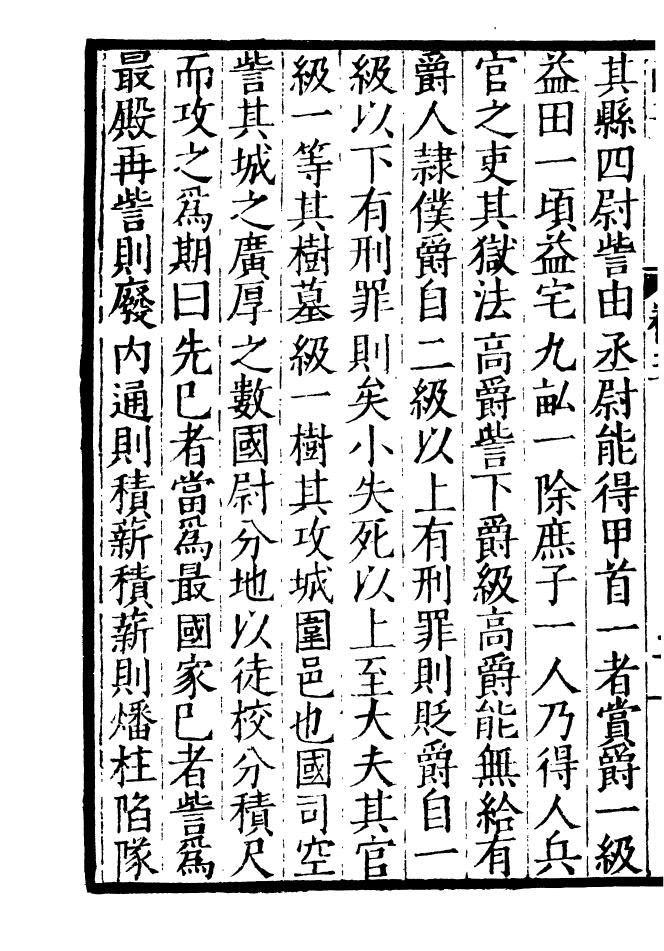 其縣四尉訾由丞尉能得甲首一者賞爵一級
益田一頃益宅九畝一除庶子一人乃得人兵
官之吏其獄法高爵訾下爵級高爵能無給有
爵人隸僕爵自二級以上有刑罪則貶爵自一
級以下有刑罪則矣小失死以上至大夫其官
級一等其樹墓級一樹其攻城圍邑也國司空
訾其城之廣厚之數國尉分地以徒校分積尺
而攻之爲期曰先已者當爲最國家已者訾爲
最殿再訾則廢內通則積薪積薪則燔柱陷隊